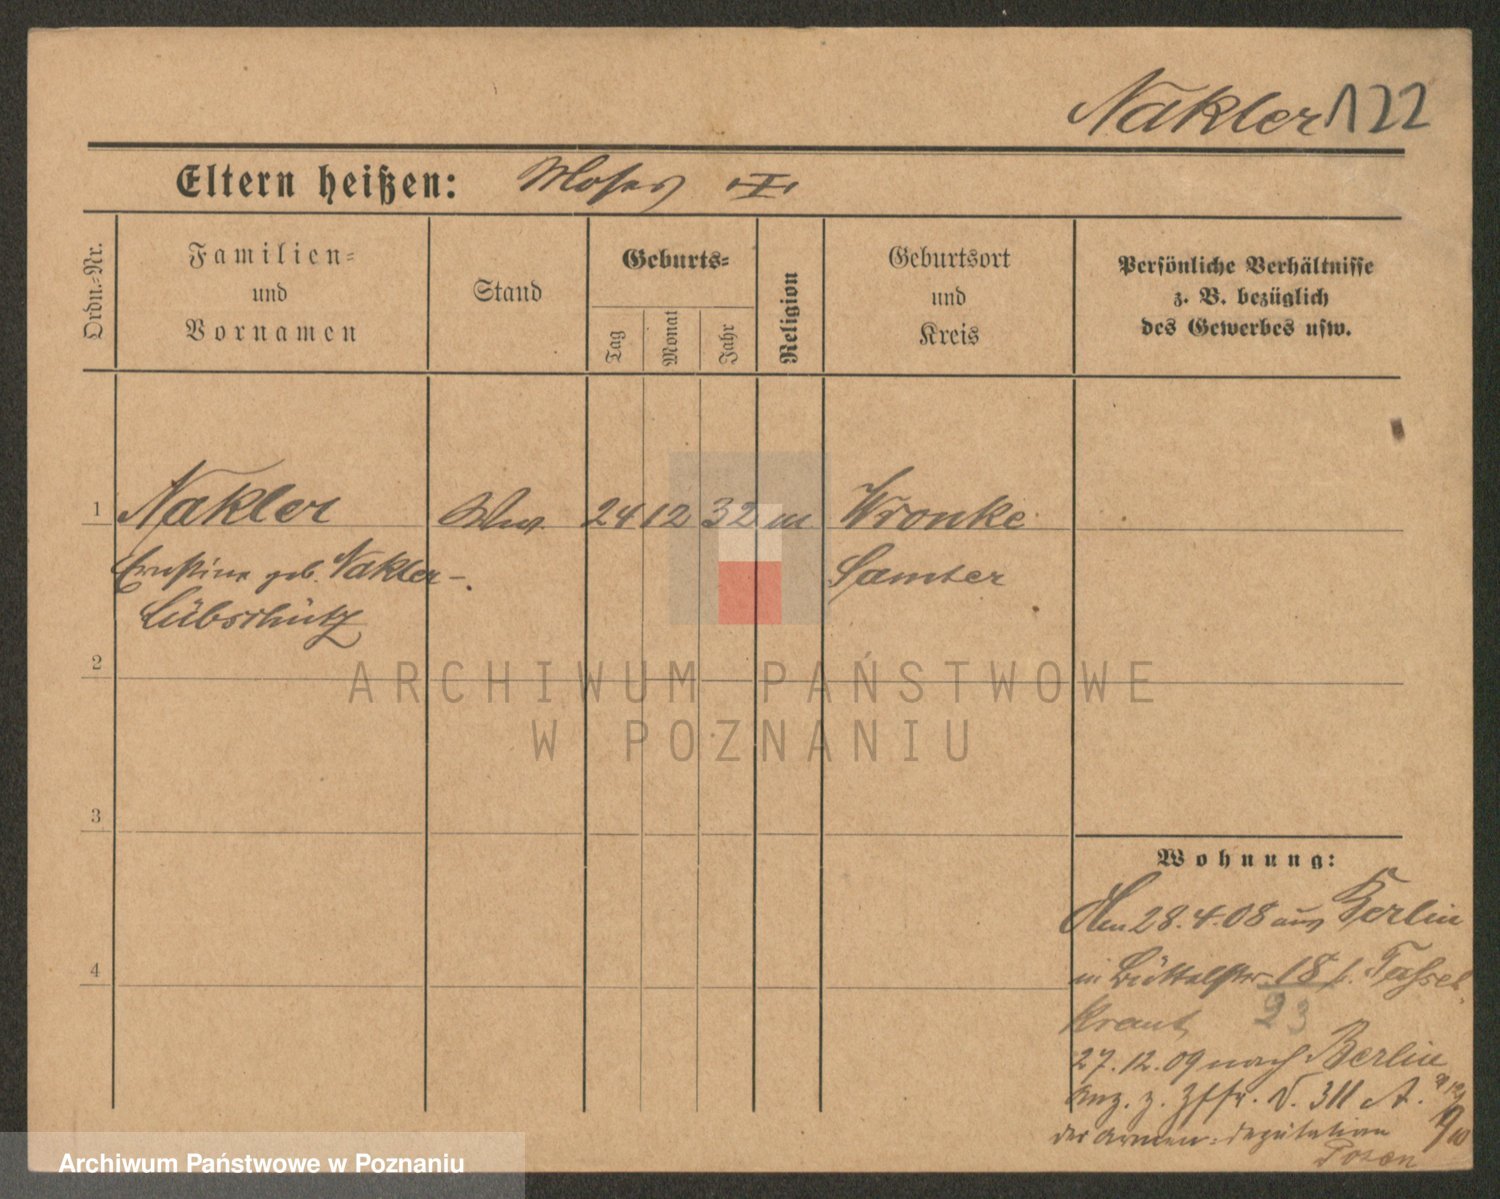 Nakler 122
Eltern heißen: Moses
Ordn.-Nr.
Familien-
und
Vornamen
Stand
Geburts-
Tag
Monat
Jahr
Religion
Geburtsort
und
Kreis
Persönliche Verhältnisse
z. B. bezüglich
des Gewerbes usw.
1 Nakler Ww. 24 12 32 m Wronke
Ernstine geb. Nakler- Samter
Lübschütz
2
3
4
Wohnung:
28.4.08 aus Berlin
in Büttelstr. 18
23
27.12.09 nach Berlin
Anz. z. 311 A.
der Armen-Deputation
Posen
ARCHIWUM PAŃSTWOWE
W POZNANIU
Archiwum Państwowe w Poznaniu